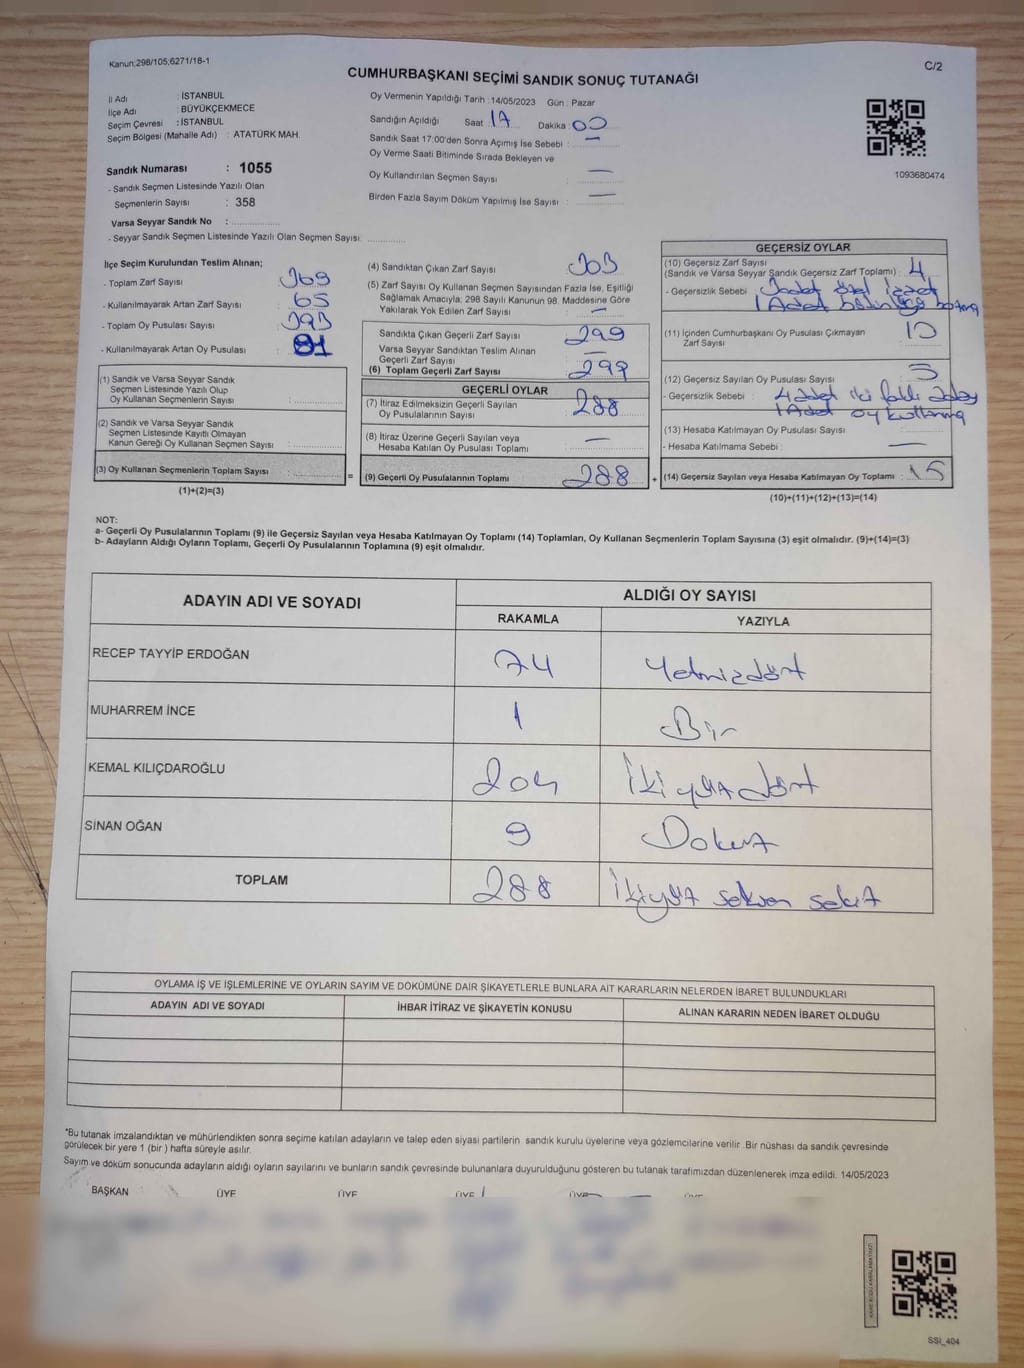 Kanun:298/105;6271/18-1
C/2
CUMHURBAŞKANI SEÇİMİ SANDIK SONUÇ TUTANAĞI
İl Adı : İSTANBUL
İlçe Adı : BÜYÜKÇEKMECE
Seçim Çevresi : İSTANBUL
Seçim Bölgesi (Mahalle Adı) : ATATÜRK MAH.
Sandık Numarası : 1055
- Sandık Seçmen Listesinde Yazılı Olan
Seçmenlerin Sayısı : 358
Varsa Seyyar Sandık No :
- Seyyar Sandık Seçmen Listesinde Yazılı Olan Seçmen Sayısı:
Oy Vermenin Yapıldığı Tarih :14/05/2023 Gün : Pazar
Sandığın Açıldığı Saat : 17 Dakika : 00
Sandık Saat 17:00'den Sonra Açımış İse Sebebi : —
Oy Verme Saati Bitiminde Sırada Bekleyen ve
Oy Kullandırılan Seçmen Sayısı : —
Birden Fazla Sayım Döküm Yapılmış İse Sayısı : —
1093680474
İlçe Seçim Kurulundan Teslim Alınan;
- Toplam Zarf Sayısı : 369
- Kullanılmayarak Artan Zarf Sayısı : 65
- Toplam Oy Pusulası Sayısı : 393
- Kullanılmayarak Artan Oy Pusulası :
(1) Sandık ve Varsa Seyyar Sandık
Seçmen Listesinde Yazılı Olup
Oy Kullanan Seçmenlerin Sayısı :
(2) Sandık ve Varsa Seyyar Sandık
Seçmen Listesinde Kayıtlı Olmayan
Kanun Gereği Oy Kullanan Seçmen Sayısı :
(3) Oy Kullanan Seçmenlerin Toplam Sayısı :
(1)+(2)=(3)
=
(4) Sandıktan Çıkan Zarf Sayısı : 303
(5) Zarf Sayısı Oy Kullanan Seçmen Sayısından Fazla İse, Eşitliği
Sağlamak Amacıyla; 298 Sayılı Kanunun 98. Maddesine Göre
Yakılarak Yok Edilen Zarf Sayısı : —
Sandıkta Çıkan Geçerli Zarf Sayısı : 299
Varsa Seyyar Sandıktan Teslim Alınan
Geçerli Zarf Sayısı : —
(6) Toplam Geçerli Zarf Sayısı : 299
GEÇERLİ OYLAR
(7) İtiraz Edilmeksizin Geçerli Sayılan
Oy Pusulalarının Sayısı : 288
(8) İtiraz Üzerine Geçerli Sayılan veya
Hesaba Katılan Oy Pusulası Toplamı : —
(9) Geçerli Oy Pusulalarının Toplamı : 288
+
GEÇERSİZ OYLAR
(10) Geçersiz Zarf Sayısı
(Sandık ve Varsa Seyyar Sandık Geçersiz Zarf Toplamı) : 4
- Geçersizlik Sebebi : 3 adet özel
1 Adet
(11) İçinden Cumhurbaşkanı Oy Pusulası Çıkmayan
Zarf Sayısı :
(12) Geçersiz Sayılan Oy Pusulası Sayısı :
- Geçersizlik Sebebi : 4 adet iki farklı aday
1 Adet oy kullanma
(13) Hesaba Katılmayan Oy Pusulası Sayısı :
- Hesaba Katılmama Sebebi : —
(14) Geçersiz Sayılan veya Hesaba Katılmayan Oy Toplamı : 15
(10)+(11)+(12)+(13)=(14)
NOT:
a- Geçerli Oy Pusulalarının Toplamı (9) ile Geçersiz Sayılan veya Hesaba Katılmayan Oy Toplamı (14) Toplamları, Oy Kullanan Seçmenlerin Toplam Sayısına (3) eşit olmalıdır. (9)+(14)=(3)
b- Adayların Aldığı Oyların Toplamı, Geçerli Oy Pusulalarının Toplamına (9) eşit olmalıdır.
ADAYIN ADI VE SOYADI
ALDIĞI OY SAYISI
RAKAMLA YAZIYLA
RECEP TAYYİP ERDOĞAN 74 Yetmişdört
MUHARREM İNCE 1 Bir
KEMAL KILIÇDAROĞLU 204 İkiyüzdört
SİNAN OĞAN 9 Dokuz
TOPLAM 288 İkiyüz seksen sekiz
OYLAMA İŞ VE İŞLEMLERİNE VE OYLARIN SAYIM VE DÖKÜMÜNE DAİR ŞİKAYETLERLE BUNLARA AİT KARARLARIN NELERDEN İBARET BULUNDUKLARI
ADAYIN ADI VE SOYADI İHBAR İTİRAZ VE ŞİKAYETİN KONUSU ALINAN KARARIN NEDEN İBARET OLDUĞU
*Bu tutanak imzalandıktan ve mühürlendikten sonra seçime katılan adayların ve talep eden siyasi partilerin sandık kurulu üyelerine veya gözlemcilerine verilir .Bir nüshası da sandık çevresinde
görülecek bir yere 1 (bir ) hafta süreyle asılır.
Sayım ve döküm sonucunda adayların aldığı oyların sayılarını ve bunların sandık çevresinde bulunanlara duyurulduğunu gösteren bu tutanak tarafımızdan düzenlenerek imza edildi. 14/05/2023
BAŞKAN ÜYE ÜYE ÜYE ÜYE
SSI_404